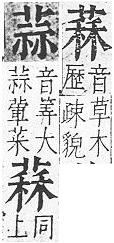 音草木
歷疎貌
蒜
音筭大
蒜葷菜
同
上